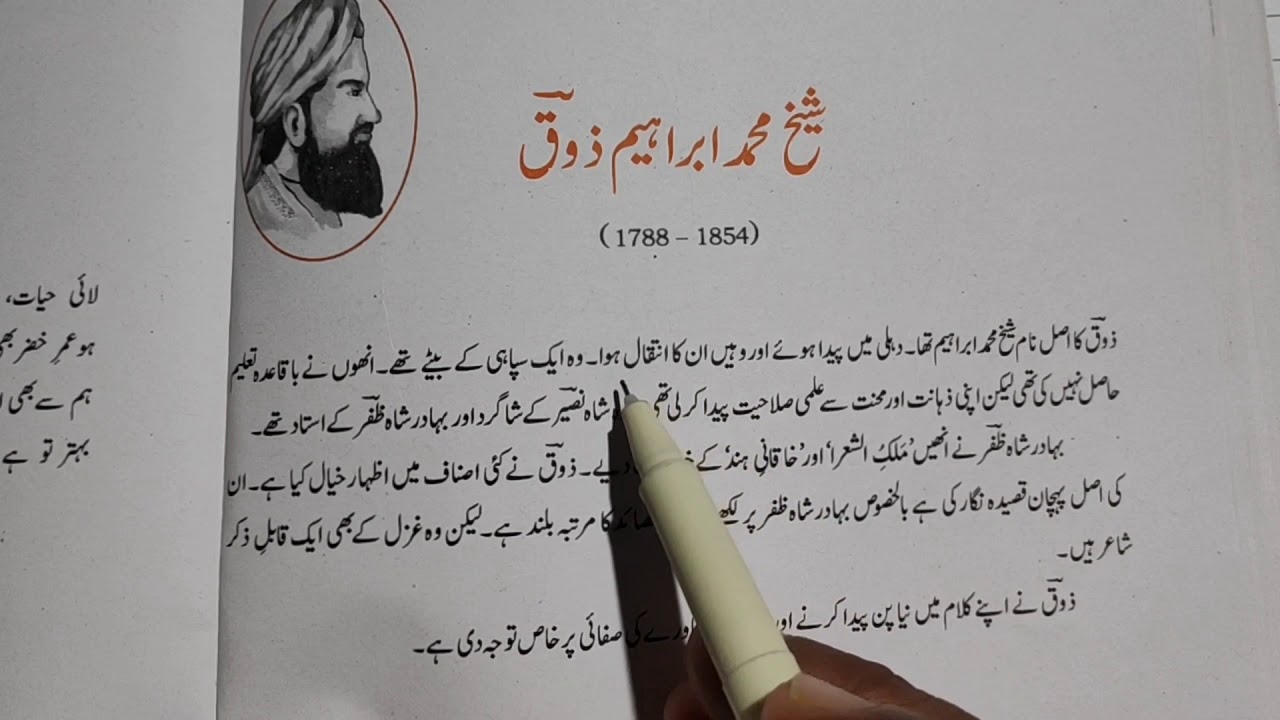 شیخ محمد ابراہیم ذوقؔ
(1788 – 1854)
ذوقؔ کا اصل نام شیخ محمد ابراہیم تھا۔ دہلی میں پیدا ہوئے اور وہیں ان کا انتقال ہوا۔ وہ ایک سپاہی کے بیٹے تھے۔ انھوں نے باقاعدہ تعلیم
حاصل نہیں کی تھی لیکن اپنی ذہانت اور محنت سے علمی صلاحیت پیدا کر لی تھی شاہ نصیرؔ کے شاگرد اور بہادر شاہ ظفرؔ کے استاد تھے۔
بہادر شاہ ظفرؔ نے انھیں ’مَلکُ الشعرا‘ اور ’خاقانیِ ہند‘ کے دیے۔ ذوقؔ نے کئی اصناف میں اظہار خیال کیا ہے۔ ان
کی اصل پہچان قصیدہ نگار کی ہے بالخصوص بہادر شاہ ظفر پر کا مرتبہ بلند ہے۔ لیکن وہ غزل کے بھی ایک قابلِ ذکر
شاعر ہیں۔
ذوقؔ نے اپنے کلام میں نیا پن پیدا کرنے اور کی صفائی پر خاص توجہ دی ہے۔
لائی حیات،
ہو عمرِ خضر بھی
ہم سے بھی
بہتر تو ہے